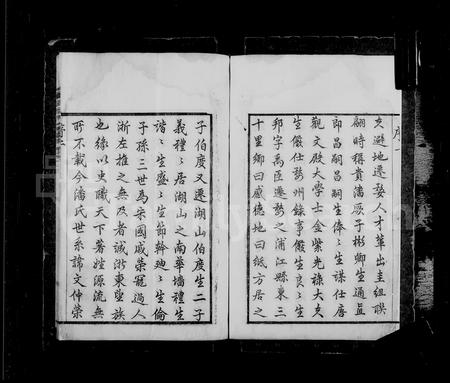 序一
久避地遷婺人才輩出圭組聯
翩時稱貴潘厥子彬卿生通益
即昌嗣昌嗣生俸〻生謀仕唐
觀文殿大學士金紫光祿大夫
生儼仕婺州錄事儼生良〻生
邦字為臣遷婺之浦江縣東三
十里鄉曰感德地曰紙方居之
子伯度又遷湖山伯度生二子
義禮〻居湖山之南華墻禮生
諧〻生盛〻生節幹廸〻生倫
子孫三世為宋國戚榮寵過人
浙左推之無及者誠浙東望族
也緣以史職天下著姓源流無
所不載今潘氏世系諱文仲榮